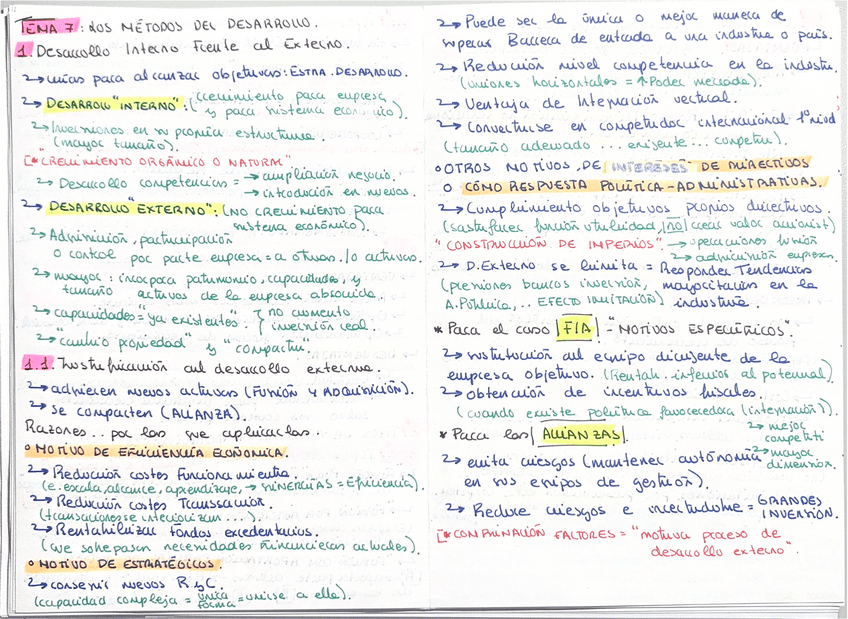 TEMA 7: LOS MÉTODOS DEL DESARROLLO.
1. Desarrollo Interno Frente al Externo.
→ vías para alcanzar objetivos: ESTRA. DESARROLLO.
→ DESARROLLO "INTERNO": (crecimiento para empresa
y para sistema económico).
→ Inversiones en su propia estructura.
(mayor tamaño).
[* "CRECIMIENTO ORGÁNICO O NATURAL"
→ Desarrollo competencias = → ampliación negocio.
→ introducción en nuevos.
→ DESARROLLO "EXTERNO": (NO CRECIMIENTO para
sistema económico).
→ Adquisición, participación
o control por parte empresa = a otras /o activos.
→ mayor : incorpora patrimonio, capacidades, y
tamaño activos de la empresa absorbida.
→ capacidades = "ya existentes". no aumento
inversión real.
→ "cambio propiedad" y "compartir".
1.1. Justificación del desarrollo externo.
→ adquieren nuevos activos (FUSIÓN Y ADQUISICIÓN).
→ se comparten (ALIANZA).
Razones.. por las que aplicarlas.
° MOTIVO DE EFICIENCIA ECONÓMICA.
→ Reducción costes Funcionamiento.
(e. escala, alcance, aprendizaje, → SINERGIAS = Eficiencia).
→ Reducción costes Transacción.
(transacciones se interiorizan ...).
→ Rentabilizar fondos excedentarios.
(que sobrepasan necesidades financieras actuales).
° MOTIVO DE ESTRATÉGICOS.
→ conseguir nuevos R y C.
(capacidad compleja = única forma = unirse a ella).
→ Puede ser la única o mejor manera de
superar Barrera de entrada a una industria o país.
→ Reducción nivel competencia en la industri.
(uniones horizontales = ↑ Poder mercado).
→ Ventaja de Integración vertical.
→ Convertirse en competidor internacional 1º nivel
(tamaño adecuado ... exigente ... competir).
° OTROS MOTIVOS, DE INTERESES DE DIRECTIVOS
O CÓMO RESPUESTA POLÍTICA - ADMINISTRATIVAS.
→ Cumplimiento objetivos propios directivos.
(satisfacer función utilidad, NO crear valor accionist)
"CONSTRUCCIÓN DE IMPERIOS" → operaciones fusión
→ adquisición empresa.
→ D. Externo se limita = Responder Tendencias
(presiones bancos inversión, mayoritarias en la
A. Pública, .. EFECTO IMITACIÓN) industria.
* Para el caso F/A - "MOTIVOS ESPECÍFICOS".
→ sustitución del equipo dirigente de la
empresa objetivo. (Rentab. inferior al potencial)
→ obtención de incentivos fiscales.
(cuando existe política favorecedora (integración).
* Para las ALIANZAS.
→ mejor
competiti
→ mayor
dimensión.
→ evita riesgos (mantener autónomía
en sus equipos de gestión).
→ Reduce riesgos e incertidumbre = GRANDES
INVERSIÓN.
[* COMBINACIÓN FACTORES = "motiva proceso de
desarrollo externo".